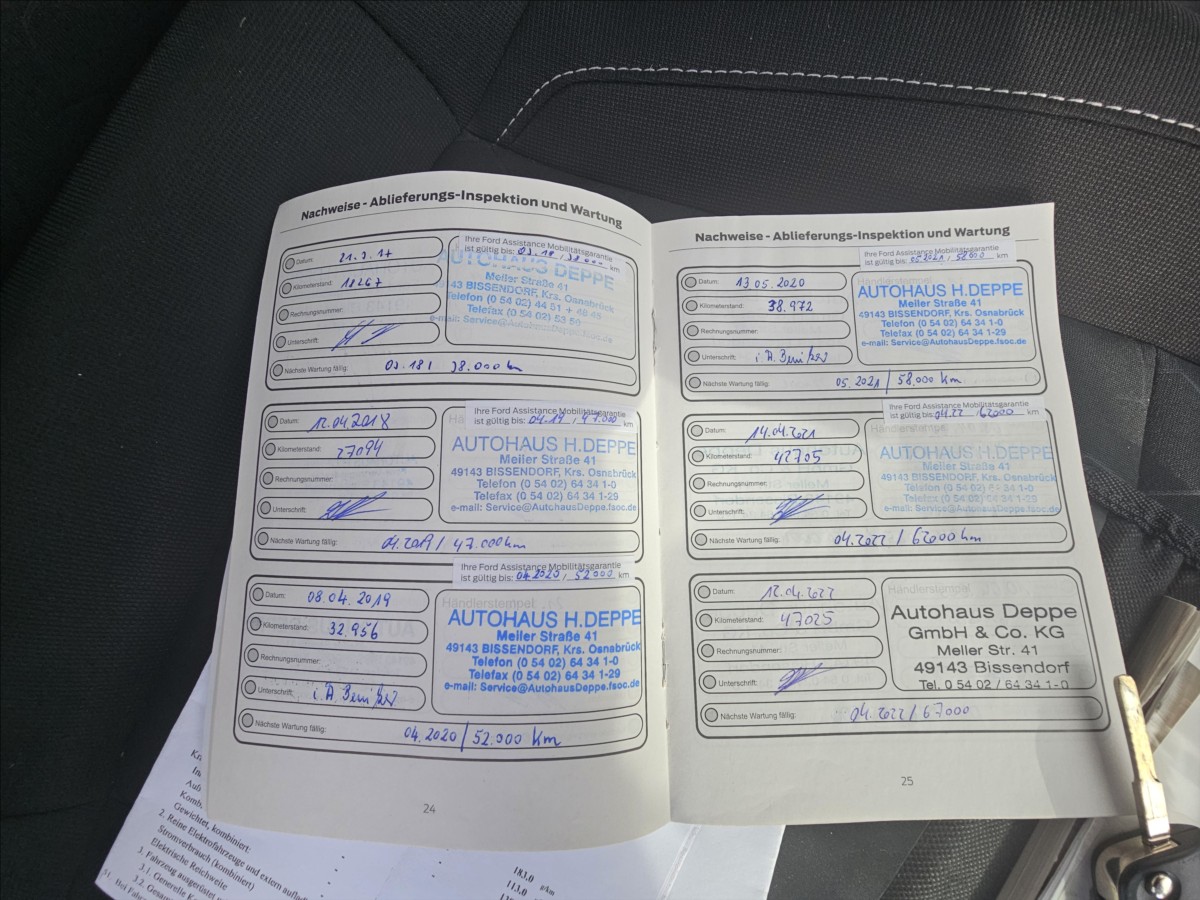 Nachweise - Ablieferungs-Inspektion und Wartung
Ihre Ford Assistance Mobilitätsgarantie
ist gültig bis: 03.18 / 38.000 km
Datum: 21.3.17
Kilometerstand: 18267
Rechnungsnummer:
Unterschrift:
AUTOHAUS DEPPE
Meller Straße 41
49143 BISSENDORF, Krs. Osnabrück
Telefon (0 54 02)
Telefax (0 54 02)
e-mail: Service@AutohausDeppe.fsoc.de
Nächste Wartung fällig: 03.18 / 38.000 km
Ihre Ford Assistance Mobilitätsgarantie
ist gültig bis: 04.19 / 47.000 km
Datum: 12.04.2018
Kilometerstand: 27094
Rechnungsnummer:
Unterschrift:
AUTOHAUS H.DEPPE
Meller Straße 41
49143 BISSENDORF, Krs. Osnabrück
Telefon (0 54 02) 64 34 1-0
Telefax (0 54 02) 64 34 1-29
e-mail: Service@AutohausDeppe.fsoc.de
Nächste Wartung fällig: 04.2019 / 47.000 km
Ihre Ford Assistance Mobilitätsgarantie
ist gültig bis: 04 2020 / 52 000 km
Datum: 08.04.2019
Kilometerstand: 32.956
Rechnungsnummer:
Unterschrift: i.A.
Händlerstempel:
AUTOHAUS H.DEPPE
Meller Straße 41
49143 BISSENDORF, Krs. Osnabrück
Telefon (0 54 02) 64 34 1-0
Telefax (0 54 02) 64 34 1-29
e-mail: Service@AutohausDeppe.fsoc.de
Nächste Wartung fällig: 04.2020 / 52.000 Km
24
Nachweise - Ablieferungs-Inspektion und Wartung
Ihre Ford Assistance Mobilitätsgarantie
ist gültig bis: 05 2021 / 58 000 km
Datum: 13.05.2020
Kilometerstand: 38.972
Rechnungsnummer:
Unterschrift: i.A.
AUTOHAUS H.DEPPE
Meller Straße 41
49143 BISSENDORF, Krs. Osnabrück
Telefon (0 54 02) 64 34 1-0
Telefax (0 54 02) 64 34 1-29
e-mail: Service@AutohausDeppe.fsoc.de
Nächste Wartung fällig: 05.2021 / 58.000 Km
Ihre Ford Assistance Mobilitätsgarantie
ist gültig bis: 04.22 / 62000 km
Datum: 14.04.2021
Kilometerstand: 42705
Rechnungsnummer:
Unterschrift:
AUTOHAUS H.DEPPE
Meller Straße 41
49143 BISSENDORF, Krs. Osnabrück
Telefon (0 54 02) 64 34 1-0
Telefax (0 54 02) 64 34 1-29
e-mail: Service@AutohausDeppe.fsoc.de
Nächste Wartung fällig: 04.2022 / 62000 km
Datum: 12.04.2022
Kilometerstand: 47025
Rechnungsnummer:
Unterschrift:
Händlerstempel:
Autohaus Deppe
GmbH & Co. KG
Meller Str. 41
49143 Bissendorf
Tel. 0 54 02 / 64 34 1-0
Nächste Wartung fällig: 04.2022 / 67000
25
Gewichtet, kombiniert:
2. Reine Elektrofahrzeuge und extern
Stromverbrauch (kombiniert)
Elektrische Reichweite
3. Fahrzeug ausgerüstet
3.1. Generelle
3.2.
183.0 g/km
113.0